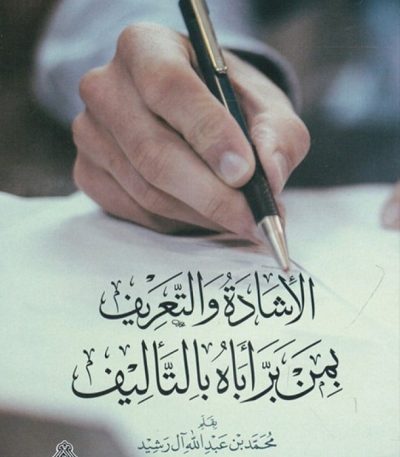 الأشَادَةُ وَالتَّعرِيف
بِمَن بَرَّ أَبَاهُ بِالتَّأليِف
بقلم
محَمَّد بن عَبد الله آل رَشِيد